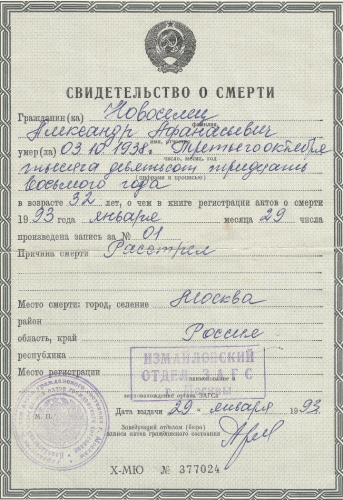 СВИДЕТЕЛЬСТВО О СМЕРТИ
Гражданин(ка) Новоселец
фамилия,
Александр Афанасьевич
имя, отчество
умер(ла) 03.10.1938. Третьего октября
число, месяц, год
тысяча девятьсот тридцать
(цифрами и прописью)
восьмого года
в возрасте 32 лет, о чем в книге регистрации актов о смерти
1993 года января месяца 29 числа
произведена запись за № 01
Причина смерти Расстрел
Место смерти: город, селение Москва
район
область, край Россия
республика
Место регистрации
ИЗМАЙЛОВСКИЙ
ОТДЕЛ ЗАГС
г. Москвы
наименование и
местонахождение органа ЗАГСа
М. П.
Дата выдачи 29 января 1993.
Заведующий отделом (бюро)
записи актов гражданского состояния
X-МЮ № 377024